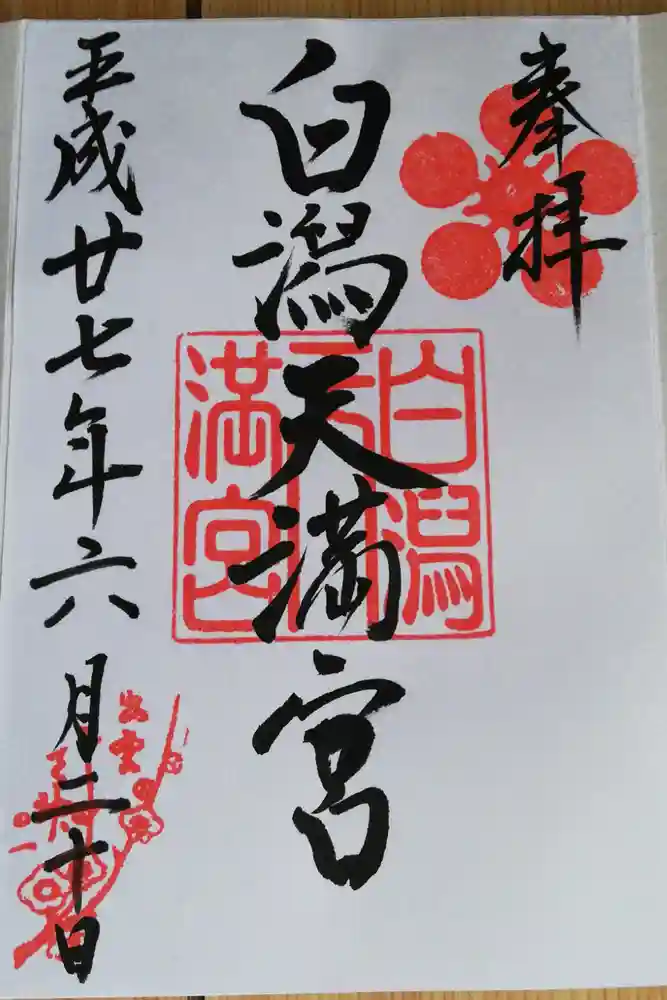 奉拝
白潟天満宮
平成廿七年六月二十日
白潟
天
満宮
出雲